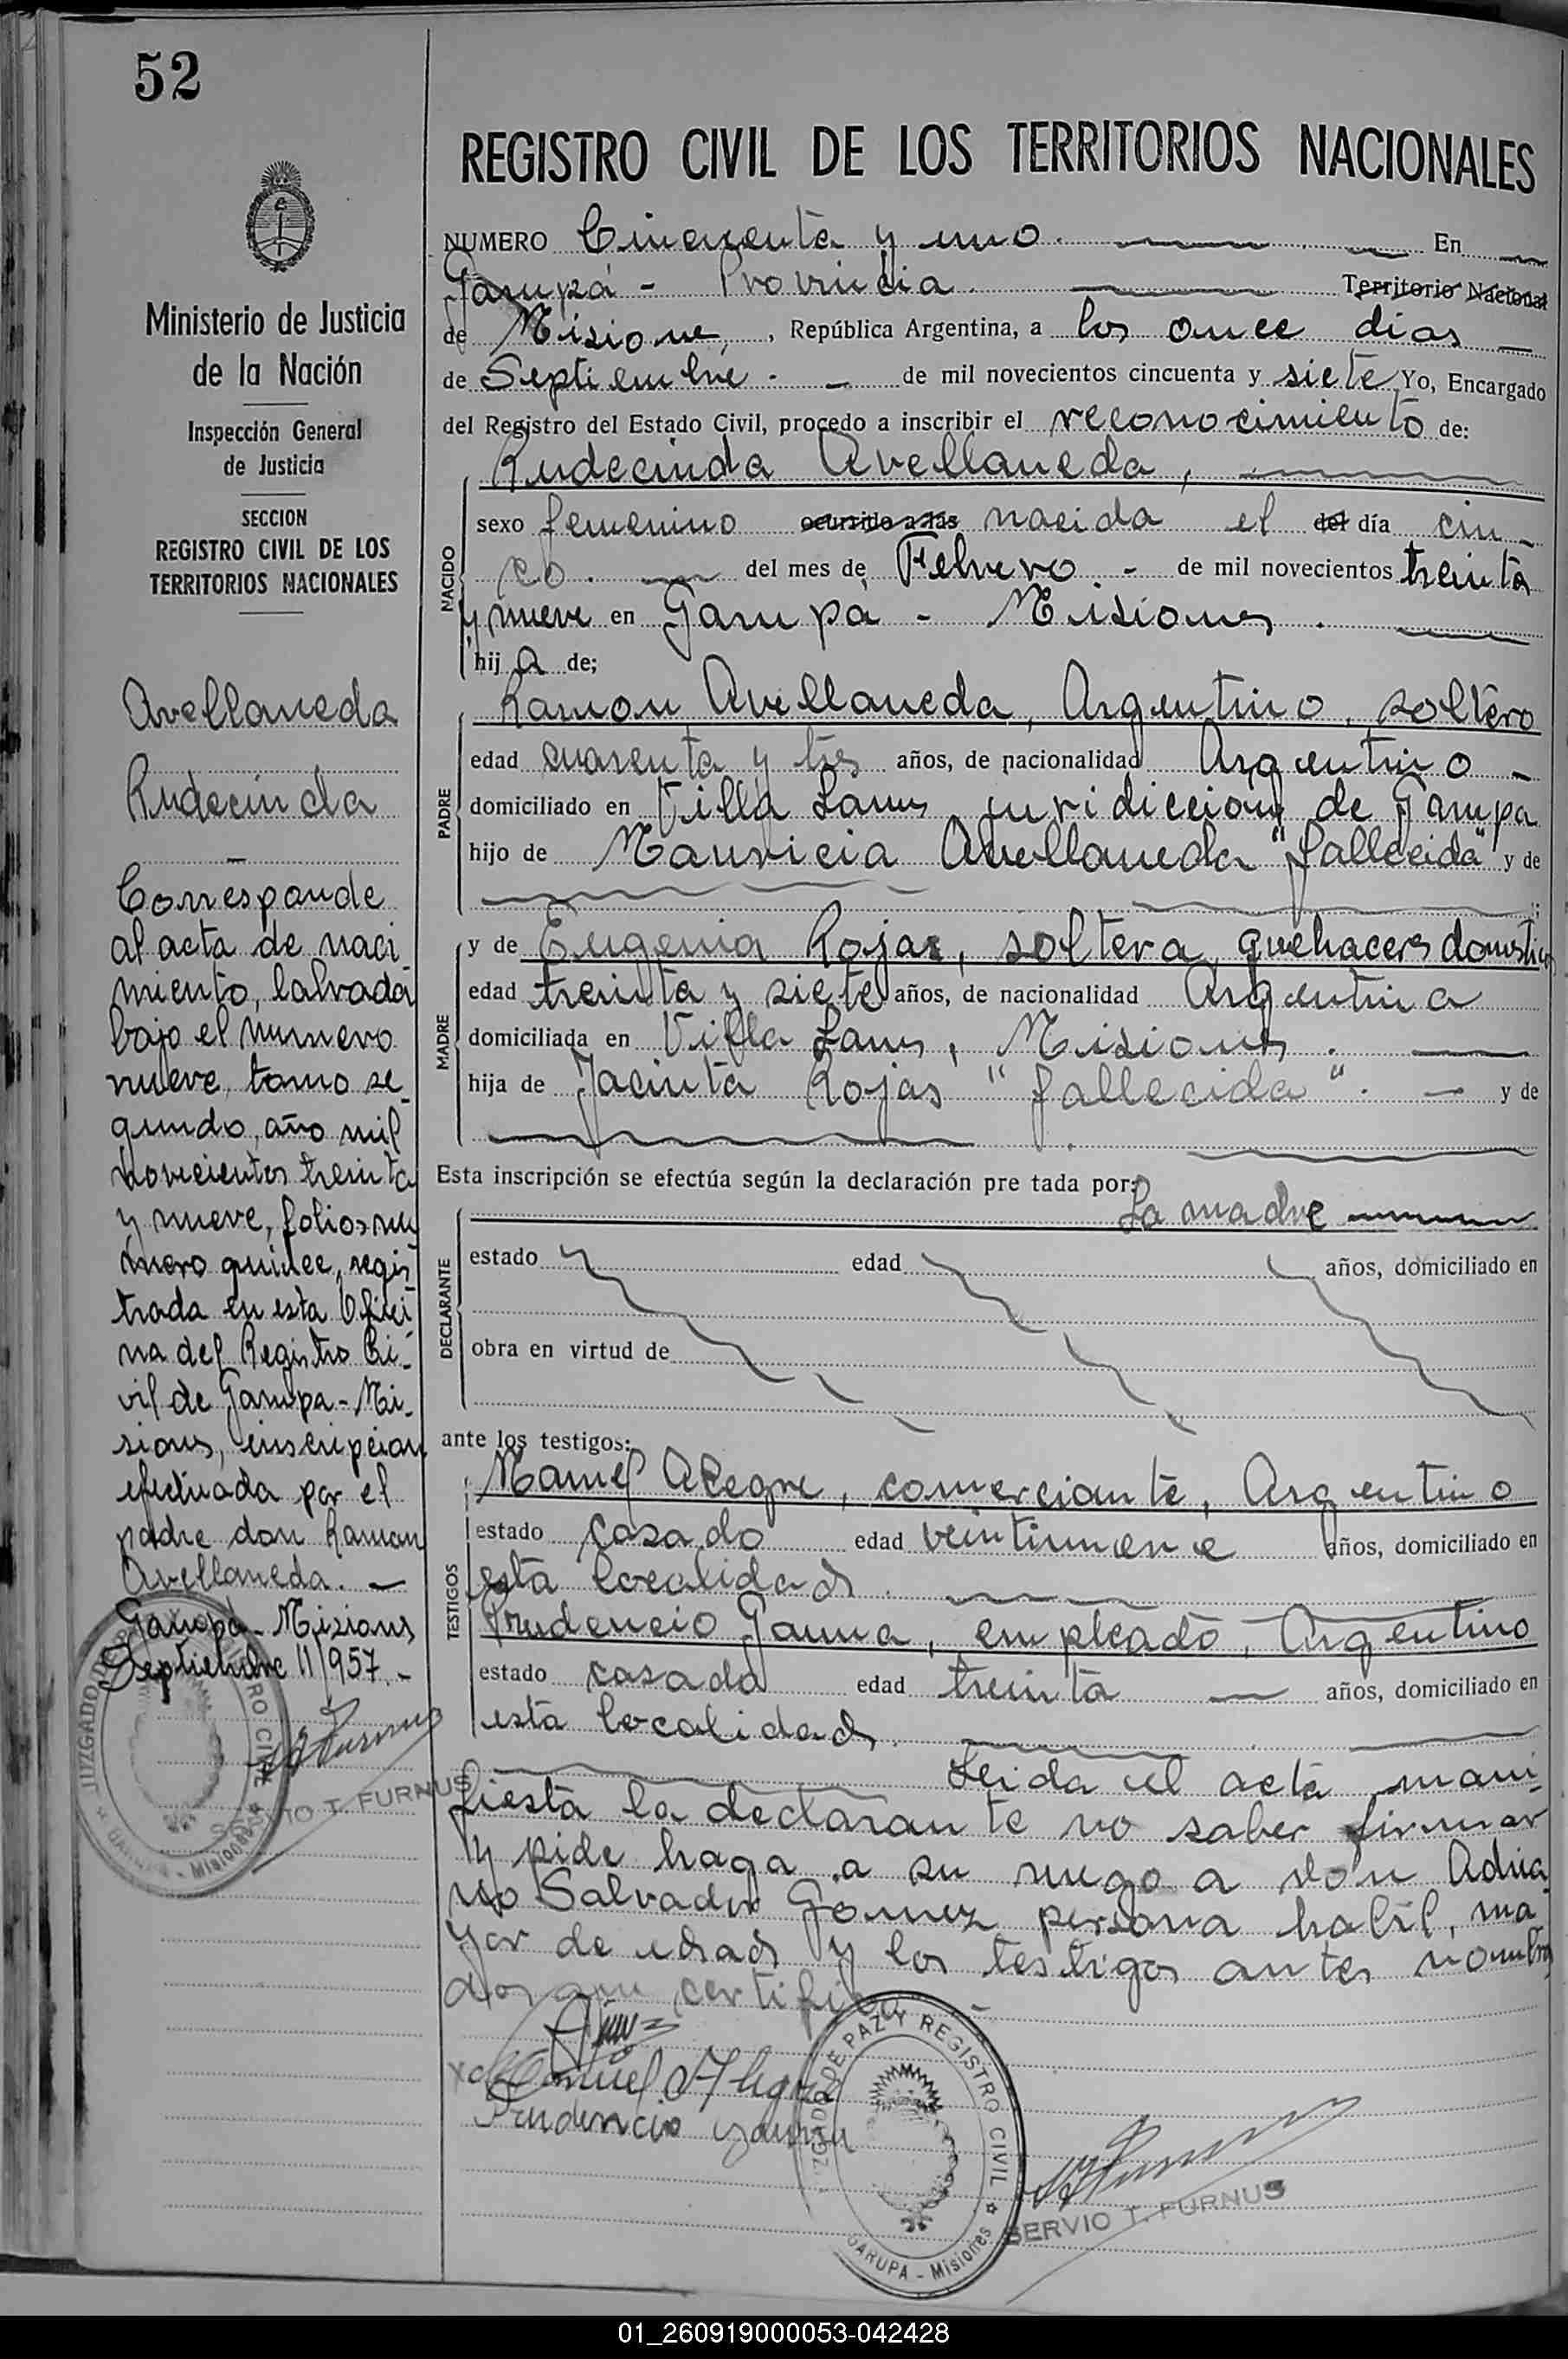 52
REGISTRO CIVIL DE LOS TERRITORIOS NACIONALES
Ministerio de Justicia
de la Nación
Inspección General
de Justicia
SECCION
REGISTRO CIVIL DE LOS
TERRITORIOS NACIONALES
Avellaneda
Rudecinda
Corresponde
al acta de naci
miento, labrada
bajo el numero
nueve, tomo se-
gundo, año mil
novecientos treinta
y nueve, folios nu
mero quince, regis
trada en esta Ofici
na del Registro Ci-
vil de Garupa - Mi-
siones, inscripcion
efectuada por el
padre don Ramon
Avellaneda. -
Garupá - Misiones
Septiembre 11/957. -
SERVIO T. FURNUS
NUMERO Cincuenta y uno. En
Garupá - Provincia. Territorio Nacional
de Misiones, República Argentina, a los once dias
de Septiembre. - de mil novecientos cincuenta y siete Yo, Encargado
del Registro del Estado Civil, procedo a inscribir el reconocimiento de:
Rudecinda Avellaneda,
NACIDO
sexo femenino ocurrido a las nacida el del día cin-
co. del mes de Febrero. - de mil novecientos treinta
y nueve en Garupá - Misiones.
hij a de;
PADRE
Ramon Avellaneda, Argentino, soltero
edad cuarenta y tres años, de nacionalidad Argentino -
domiciliado en Villa Lanus juridiccion de Garupa
hijo de Mauricia Avellaneda "fallecida" y de
MADRE
y de Eugenia Rojas, soltera, quehaceres domesticos
edad treinta y siete años, de nacionalidad Argentina
domiciliada en Villa Lanus, Misiones.
hija de Jacinta Rojas "fallecida". - y de
Esta inscripción se efectúa según la declaración pre tada por:
La madre
DECLARANTE
estado edad años, domiciliado en
obra en virtud de
ante los testigos:
TESTIGOS
Manuel Alegre, comerciante, Argentino
estado casado edad veintinueve años, domiciliado en
esta localidad.
Prudencio Gauna, empleado, Argentino
estado casado edad treinta años, domiciliado en
esta localidad.
Leida el acta mani-
fiesta la declarante no saber firmar
y pide haga a su ruego a don Adria
no Salvador Gomez persona habil, ma
yor de edad y los testigos antes nombra
dos que certifico. -
Manuel Alegre
Prudencio Gauna
JUZGADO DE PAZ Y REGISTRO CIVIL
GARUPA - Misiones
SERVIO T. FURNUS
01_260919000053-042428